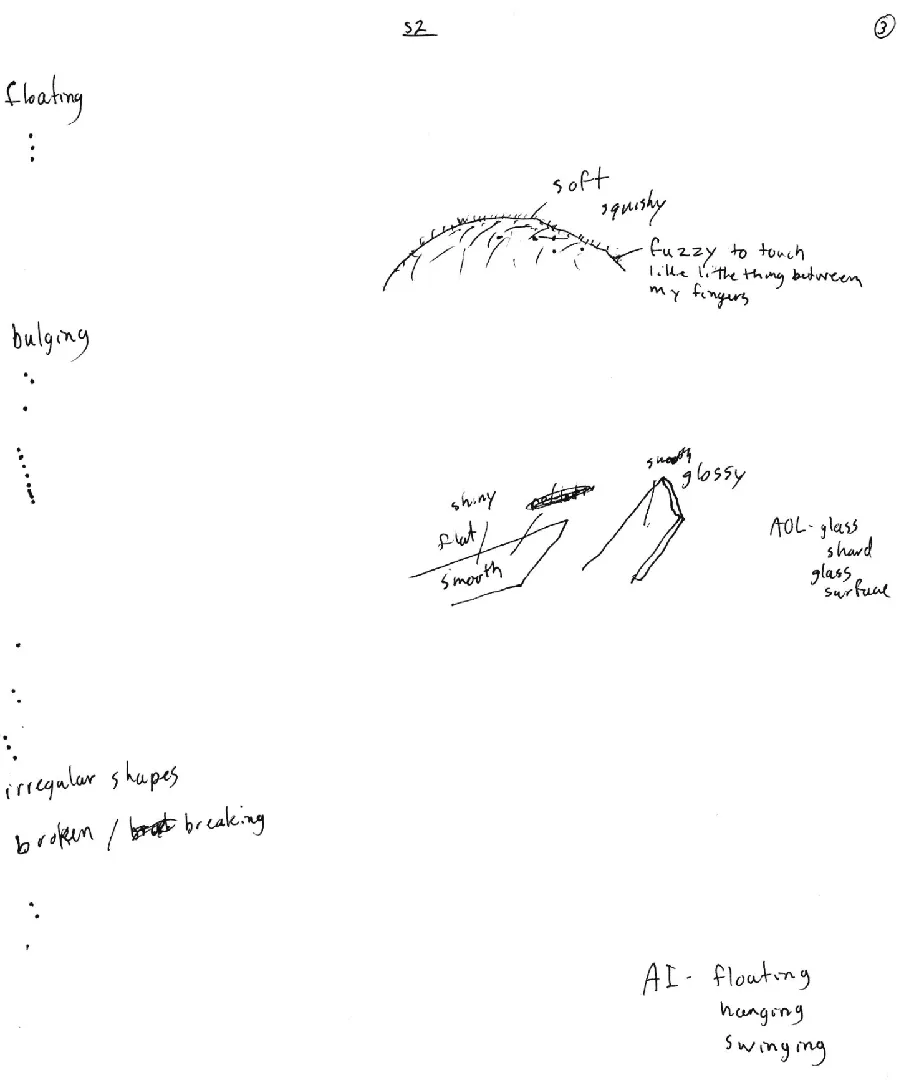 S2
3
floating
soft
squishy
fuzzy to touch
like little thing between
my fingers
bulging
smooth
glossy
shiny
flat
smooth
AOL- glass
shard
glass
surface
irregular shapes
broken / breaking
AI - floating
hanging
swinging